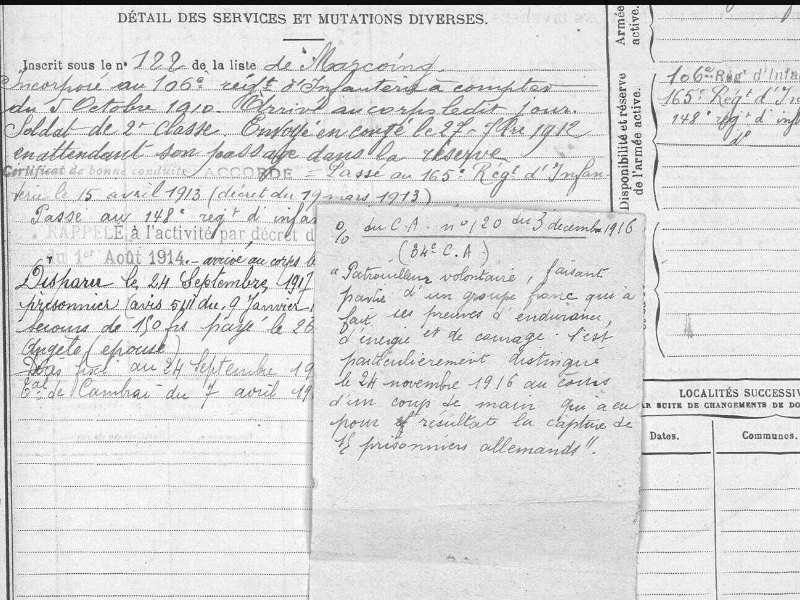 DÉTAIL DES SERVICES ET MUTATIONS DIVERSES.
Inscrit sous le n° 122 de la liste de Marcoing
Incorporé au 106e régt d'Infanterie à compter
du 5 Octobre 1910. Arrivé au corps ledit jour.
Soldat de 2e classe. Envoyé en congé le 27-7bre 1912
en attendant son passage dans la réserve
Certificat de bonne conduite ACCORDÉ = Passé au 165e Régt d'Infan-
terie le 15 avril 1913 (décret du 19 mars 1913)
Passé au 148e regt d'infan
RAPPELÉ à l'activité par décret d
du 1er Août 1914. - arrivé au corps le
Disparu le 24 Septembre 191
prisonnier (avis du 9 Janvier 1
secours de 150 frs payé le 26
Angèle (epouse)
au 24 Septembre 19
de Cambrai du 7 avril 19
% du C.A. n° 120 du 3 decembre 1916
(34e C.A)
"Patrouilleur volontaire, faisant
partie d'un groupe franc qui a
fait ses preuves d'endurance,
d'énergie et de courage. S'est
particulièrement distingué
le 24 novembre 1916 au cours
d'un coup de main qui a eu
pour résultats la capture de
prisonniers allemands".
Armée
active.
Disponibilité et réserve
de l'armée active.
106e Régt d'Infa
165e Régt d'In
148e régt d'infa
do
LOCALITÉS SUCCESSIV
AR SUITE DE CHANGEMENTS DE DO
Dates.
Communes.